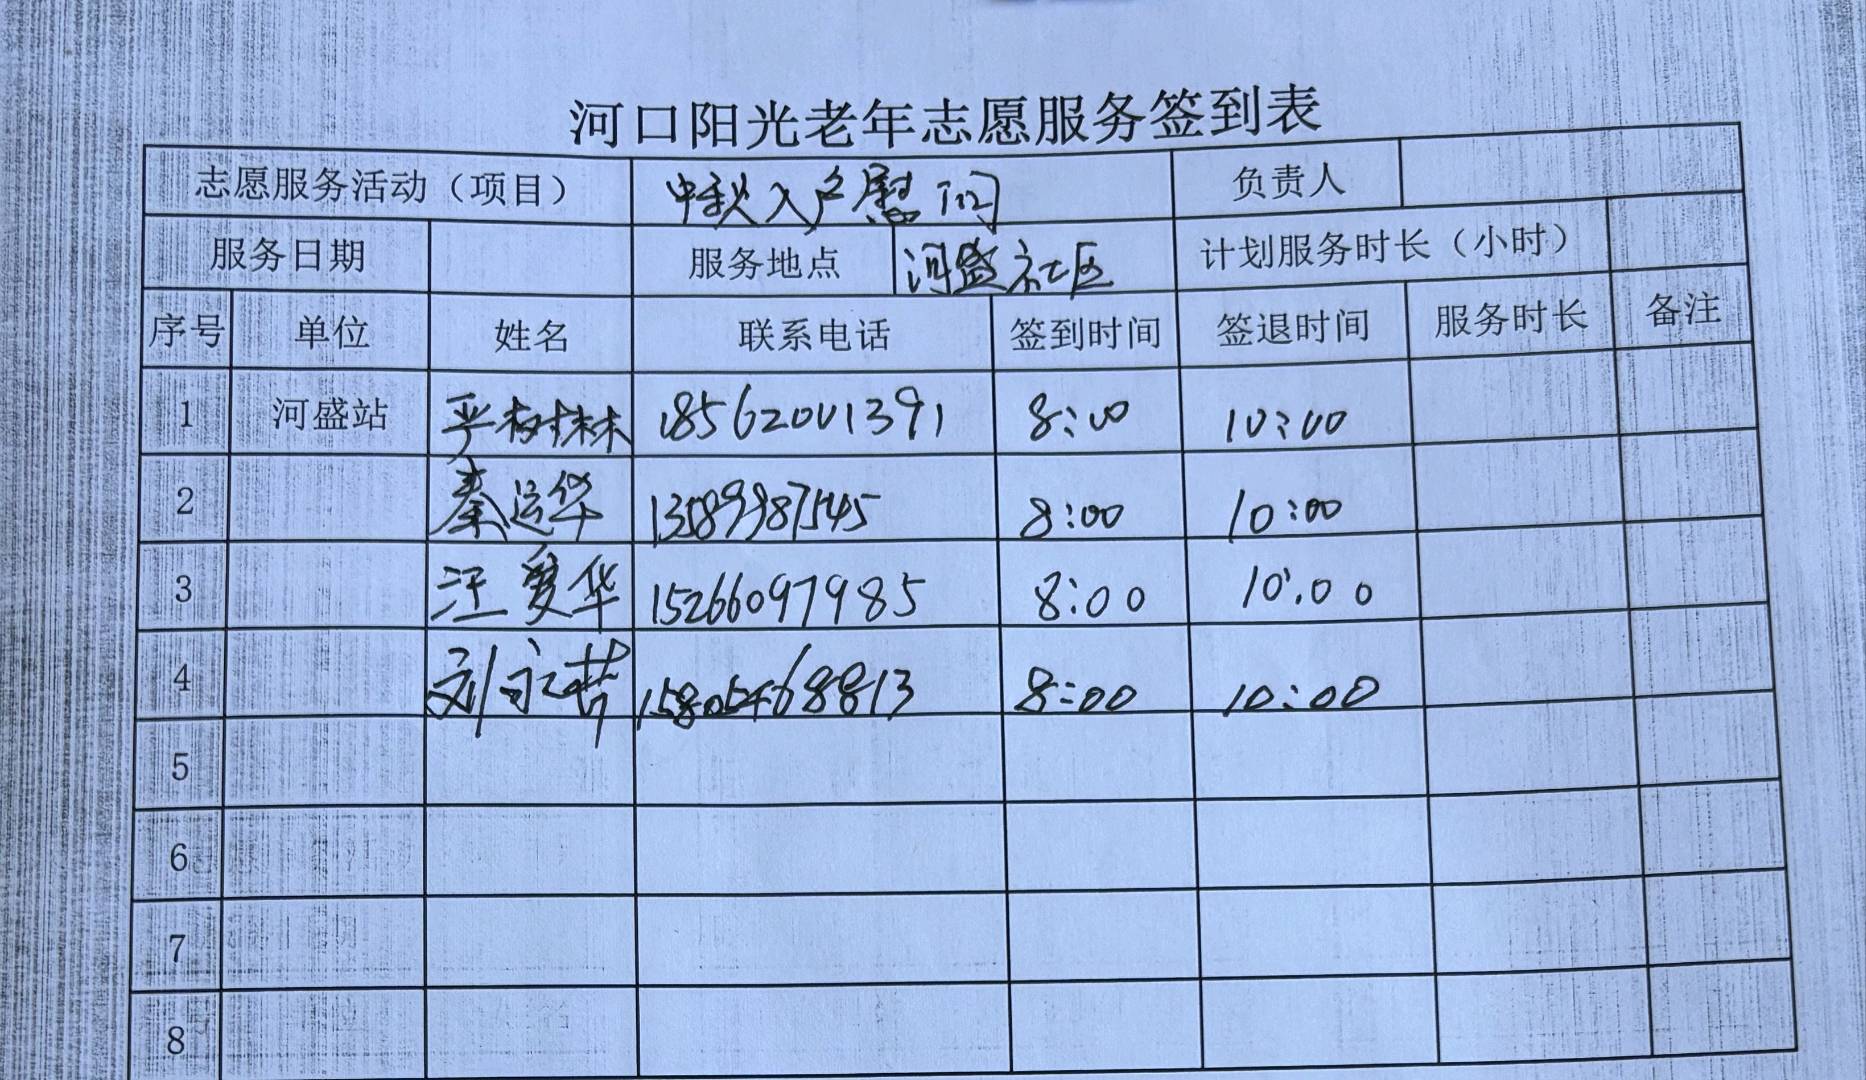 河口阳光老年志愿服务签到表
志愿服务活动（项目） 中秋入户慰问 负责人
服务日期 服务地点 河盛社区 计划服务时长（小时）
序号 单位 姓名 联系电话 签到时间 签退时间 服务时长 备注
1 河盛站 严树林 18562001391 8:00 10:00
2 秦运华 13589987545 8:00 10:00
3 汪爱华 15266097985 8:00 10:00
4 刘 15805468813 8:00 10:00
5
6
7
8